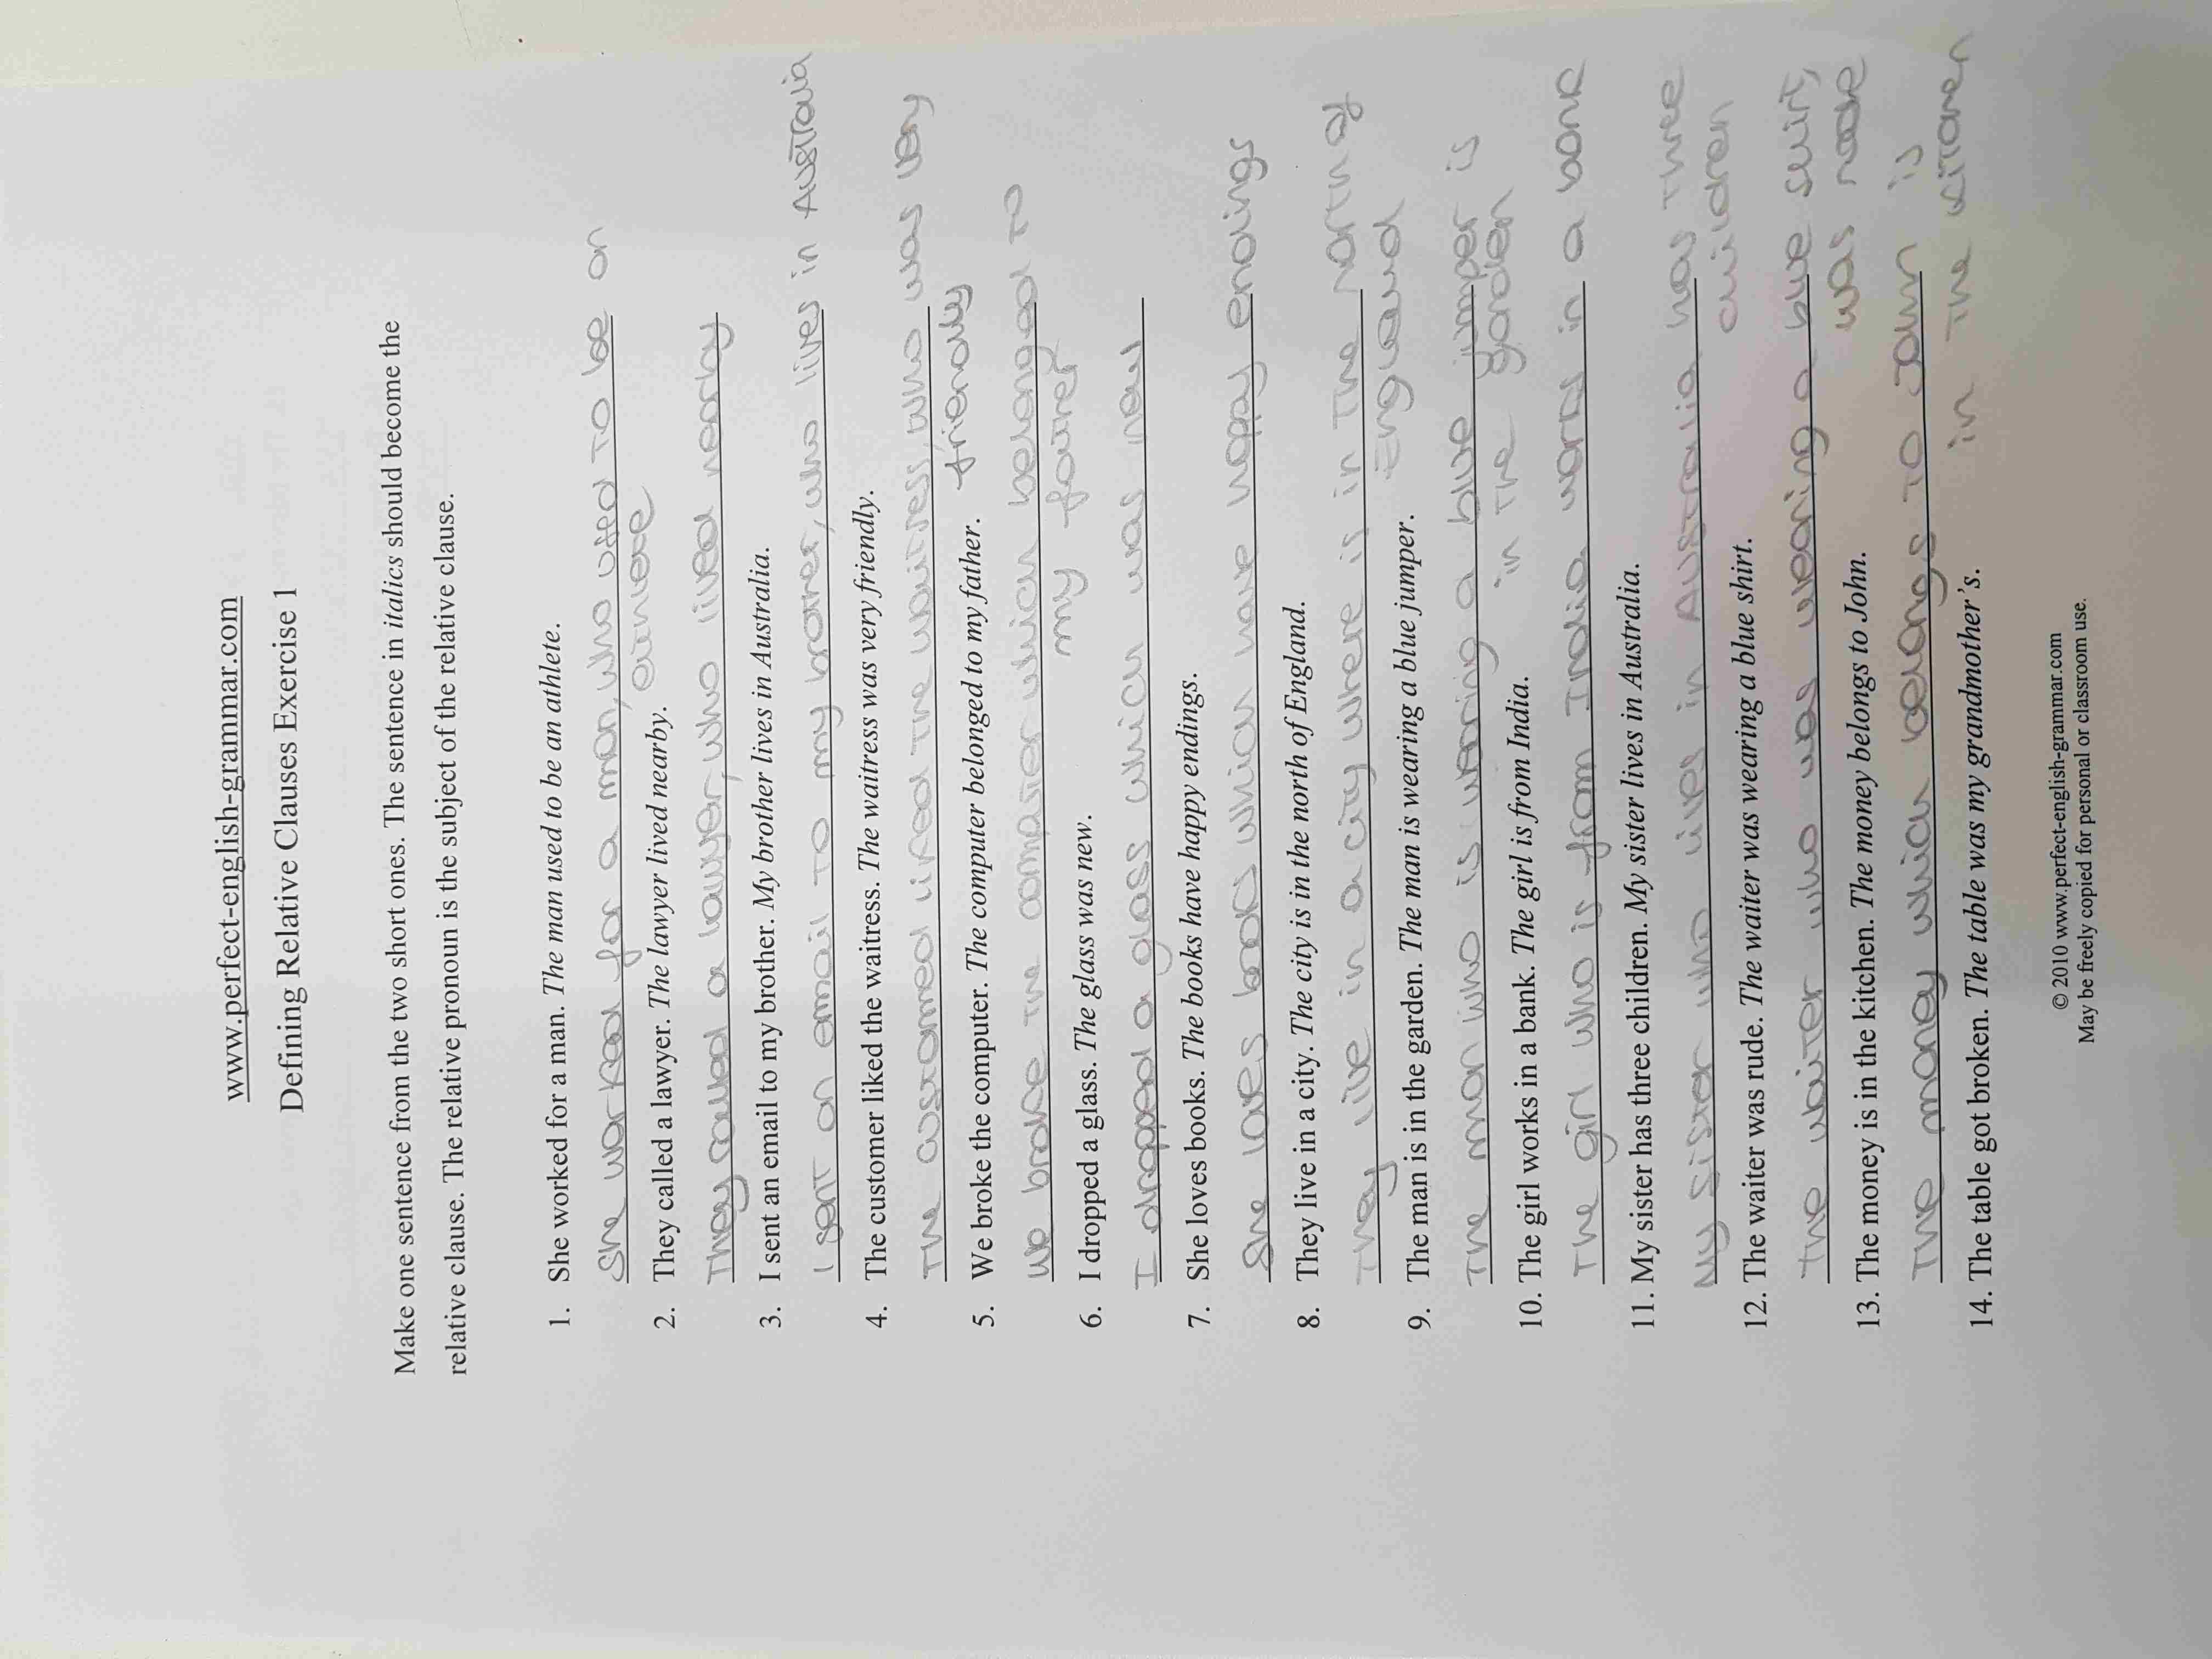 www.perfect-english-grammar.com
Defining Relative Clauses Exercise 1
Make one sentence from the two short ones. The sentence in italics should become the
relative clause. The relative pronoun is the subject of the relative clause.
1. She worked for a man. The man used to be an athlete.
She worked for a man, who used to be an
2. They called a lawyer. The lawyer lived nearby.
They called a lawyer, who lived nearby
3. I sent an email to my brother. My brother lives in Australia.
I sent an email to my brother, who lives in Australia
4. The customer liked the waitress. The waitress was very friendly.
The customed liked the waitress, who was very
friendly
5. We broke the computer. The computer belonged to my father.
We broke the which belonged to
my father
6. I dropped a glass. The glass was new.
I dropped a glass which was new
7. She loves books. The books have happy endings.
She loves books which have happy endings
8. They live in a city. The city is in the north of England.
They live in a city where is in the north of
England
9. The man is in the garden. The man is wearing a blue jumper.
The man who is wearing a blue jumper is
in the garden
10. The girl works in a bank. The girl is from India.
The girl who is from India works in a bank
11. My sister has three children. My sister lives in Australia.
My sister who lives in Australia has three
children
12. The waiter was rude. The waiter was wearing a blue shirt.
The waiter who was wearing a blue
was
13. The money is in the kitchen. The money belongs to John.
The money which belongs to John is
in the kitchen
14. The table got broken. The table was my grandmother's.
© 2010 www.perfect-english-grammar.com
May be freely copied for personal or classroom use.